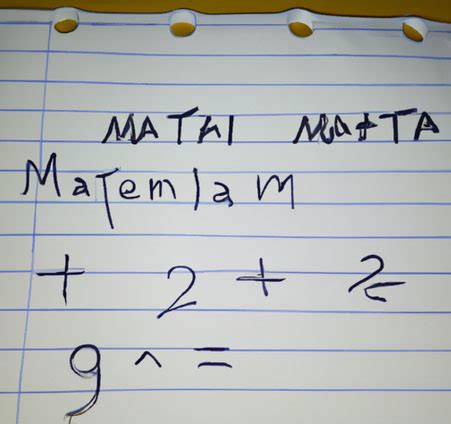 MATHI Ma+TA
Matemlam
+ 2 + 2
9 ^ =